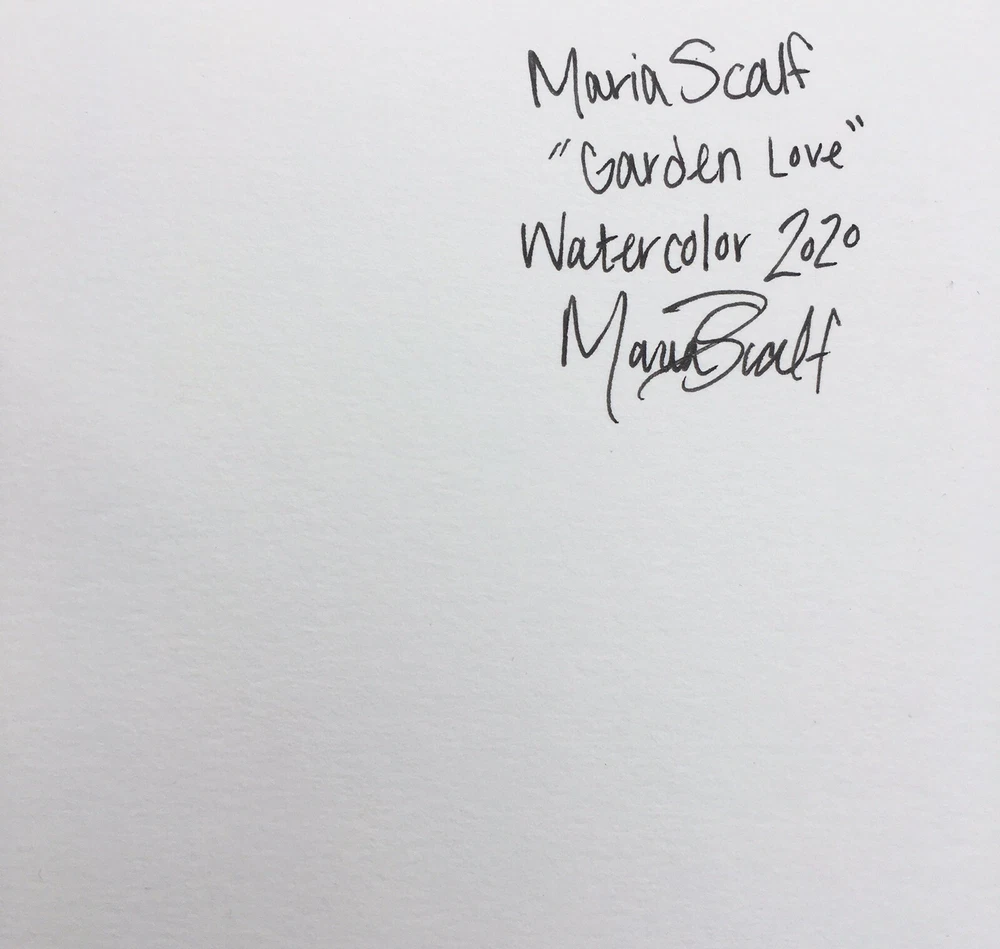 Maria Scalf
"Garden Love"
Watercolor 2020
Maria Scalf